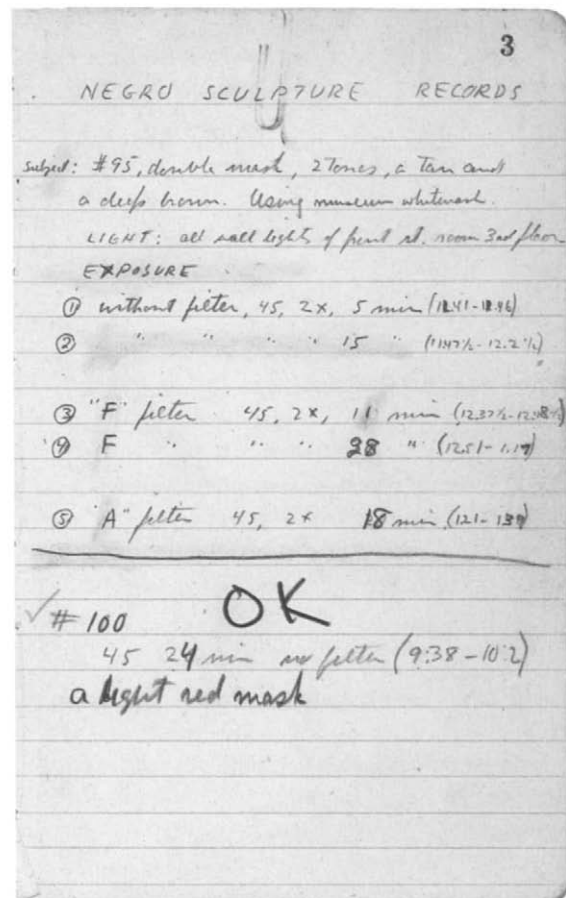 3
NEGRO SCULPTURE RECORDS
Subject: #95, double mask, 2 Tones, a Tan and
a deep brown. Using museum whitewash.
LIGHT: all wall lights of front st. room 3rd floor
EXPOSURE
① without filter, 45, 2x, 5 min
② " " " " 15 " (11.47½ - 12.2½)
③ "F" filter 45, 2x, 11 min
④ F " " " 28 " (12.51 - 1.19)
⑤ "A" filter 45, 2x 18 min (1.21 - 1.39)
OK
✓ # 100
45 24 min no filter (9:38 - 10:2)
a light red mask